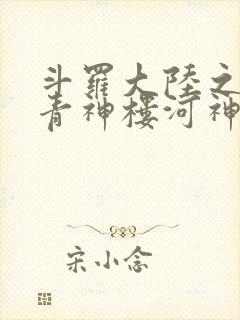 斗羅大陸之
青神樓河神
宋小念